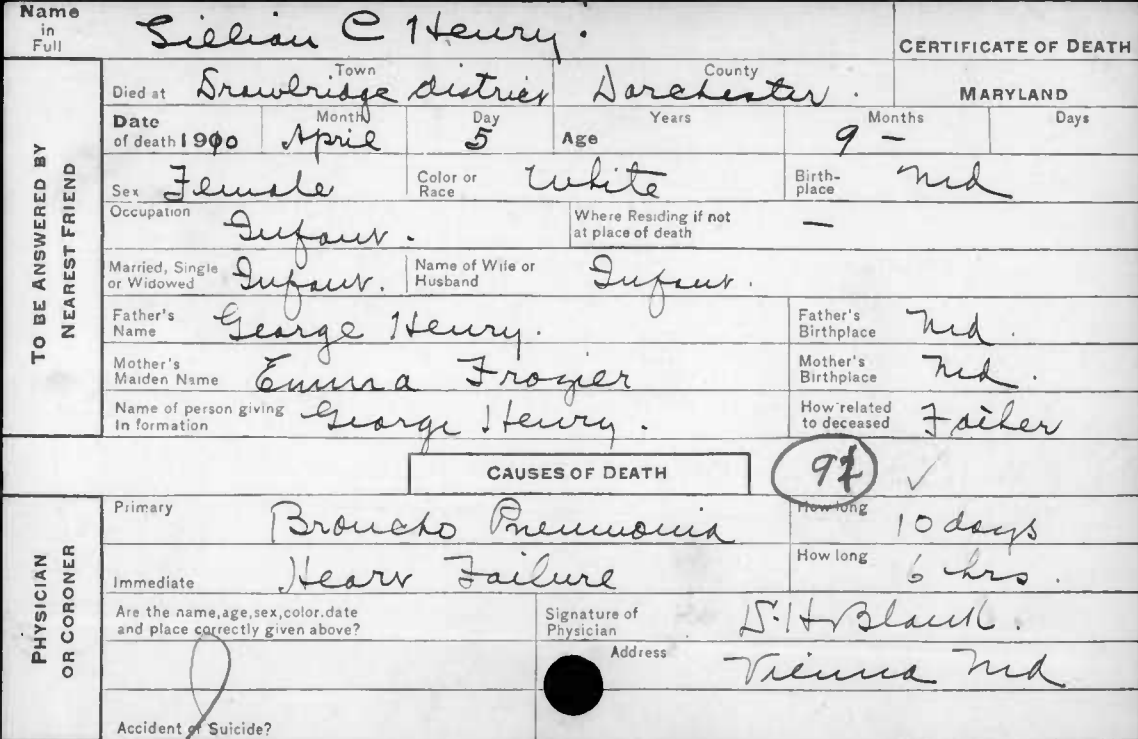 Name in Full Lillian C Henry.
CERTIFICATE OF DEATH
TO BE ANSWERED BY NEAREST FRIEND
Died at Town Drawbridge district County Dorchester. MARYLAND
Date of death 1900 Month April Day 5 Age Years Months 9 - Days
Sex Female Color or Race White Birth-place Md
Occupation Infant. Where Residing if not at place of death —
Married, Single or Widowed Infant. Name of Wife or Husband Infant.
Father's Name George Henry. Father's Birthplace Md.
Mother's Maiden Name Emma Frozier Mother's Birthplace Md.
Name of person giving In formation George Henry. How related to deceased Father
CAUSES OF DEATH ✓
PHYSICIAN OR CORONER
Primary Broncho Pneumonia How long 10 days
Immediate Heart Failure How long 6 hrs.
Are the name,age,sex,color.date and place correctly given above? Signature of Physician
Address Vienna Md
Accident or Suicide?